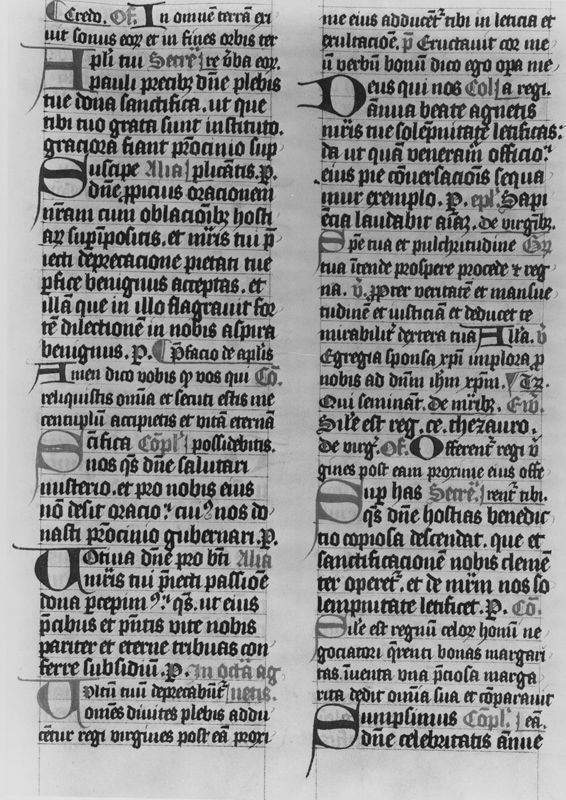 Credo. Of. In omnē terrā exi
uit sonus eoꝝ et in fines orbis ter
Apl̄i tui Secre. re ūba eoꝝ.
pauli precibꝫ dn̄e plebis
tue dona sanctifica. ut que
tibi tuo grata sunt instituto.
graciora fiant p̄ocinio sup
Suscipe Alia plicātis. P.
dn̄e ꝓpicius oracionem
nr̄am cum oblacōibꝫ hosti
aꝝ sup̄īpositis. et mīris tui p̄
iecti deprecacione pietati tue
ꝑfice benignus acceptas. et
illā que in illo flagrauit for
tē dilectionē in nobis aspira
benignus. P. P̄facio de apl̄is
Amen dico vobis ꝙ vos qui Cō.
reliquistis om̄ia et secuti estis me
centuplū accipietis et vitā eternā
Scīfica Cōpl̄. possidebitis.
nos qs̄ dn̄e salutari
misterio. et pro nobis eius
nō desit oracio: cuiꝰ nos do
nasti p̄ocinio gubernari. P.
Uotiua dn̄e pro bt̄i Alia
mīris tui p̄iecti passiōe
dona ꝑcepimꝰ: qs̄. ut eius
p̄cibus et p̄ntis vite nobis
pariter et eterne tribuas con
ferre subsidiū. P. In octa ag
Uultū tuū deprecabūt netis.
om̄es diuites plebis addu
cētur regi virgines post eā proxi
me eius adducēt tibi in leticia et
exultaciōe. p̄ Eructauit cor me
ū verbū bonū dico ego opa me
Deus qui nos Coll̄a regi.
ānua beate agnetis
mīris tue solēpnitate letificas:
da ut quā veneram̄ officio:
eius pie cōuersacōis sequa
mur exemplo. P. epl̄. Sapi
ēcia laudabit aīaꝫ. de virgībꝫ.
Spe tua et pulchritudine Gr̄
tua ītende prospere procede ⁊ reg
na. v̄. ꝓpter veritatē et mansue
tudinē et iusticiā et deducet te
mirabilit dextera tua All̄a. v̄
Egregia sponsa xp̄i implora p
nobis ad dn̄m ih̄m xp̄m. Tr.
Qui seminant. De mr̄ibꝫ. Ew̄.
Sil̄e est reg. ce. thezauro.
de virg. Of. Offerent regi v̄
gines post eam proxime eius offe
Sup has Secre. rent tibi.
qs̄ dn̄e hostias benedic
tio copiosa descendat. que et
sanctificacionē nobis clemē
ter operet. et de mr̄im nos so
lempnitate letificet. P. Cō.
Sil̄e est regnū celoꝝ hom̄i ne
gociatori q̄renti bonas margari
tas. īuenta vna p̄ciosa marga
rita dedit om̄ia sua et cōparauit
Sumpsimus Cōpl̄. eā.
dn̄e celebritatis ānue